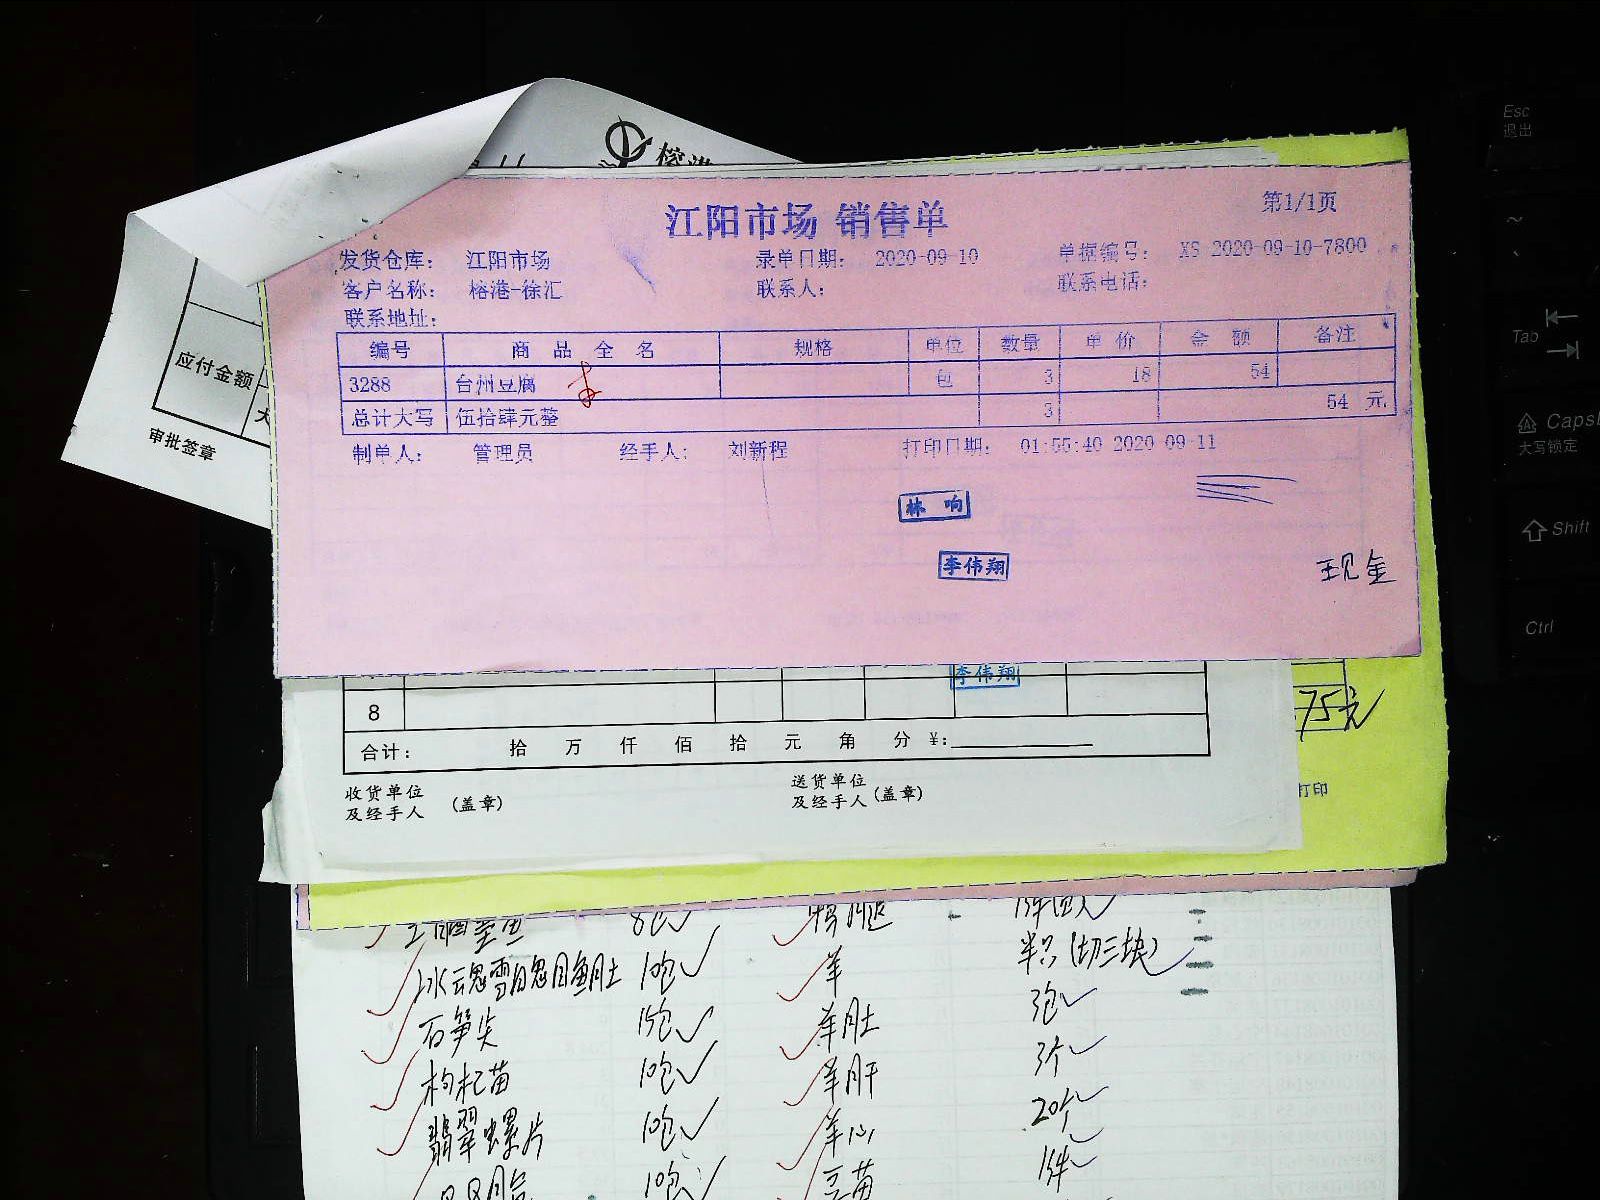 榕港
应付金额
审批签章
江阳市场 销售单
第1/1页
发货仓库: 江阳市场 录单日期: 2020-09-10 单据编号: XS-2020-09-10-7800
客户名称: 榕港-徐汇 联系人: 联系电话:
联系地址:
编号 商品全名 规格 单位 数量 单价 金额 备注
3288 台州豆腐 包 3 18 54
总计大写 伍拾肆元整 3 54 元
制单人: 管理员 经手人: 刘新程 打印日期: 01:55:40 2020-09-11
林 响
李伟翔
现金
李伟翔
8
75元
合计: 拾 万 仟 佰 拾 元 角 分 ¥:
收货单位 送货单位
及经手人 (盖章) 及经手人 (盖章)
打印
8包
10包 羊 半只(切三块)
石笋尖 15包 羊肚 3包
枸杞苗 10包 羊肝 3个
翡翠螺片 10包 羊心 20个
10包 豆苗 1件
Esc
退出
~
Tab
Caps
大写锁定
Shift
Ctrl